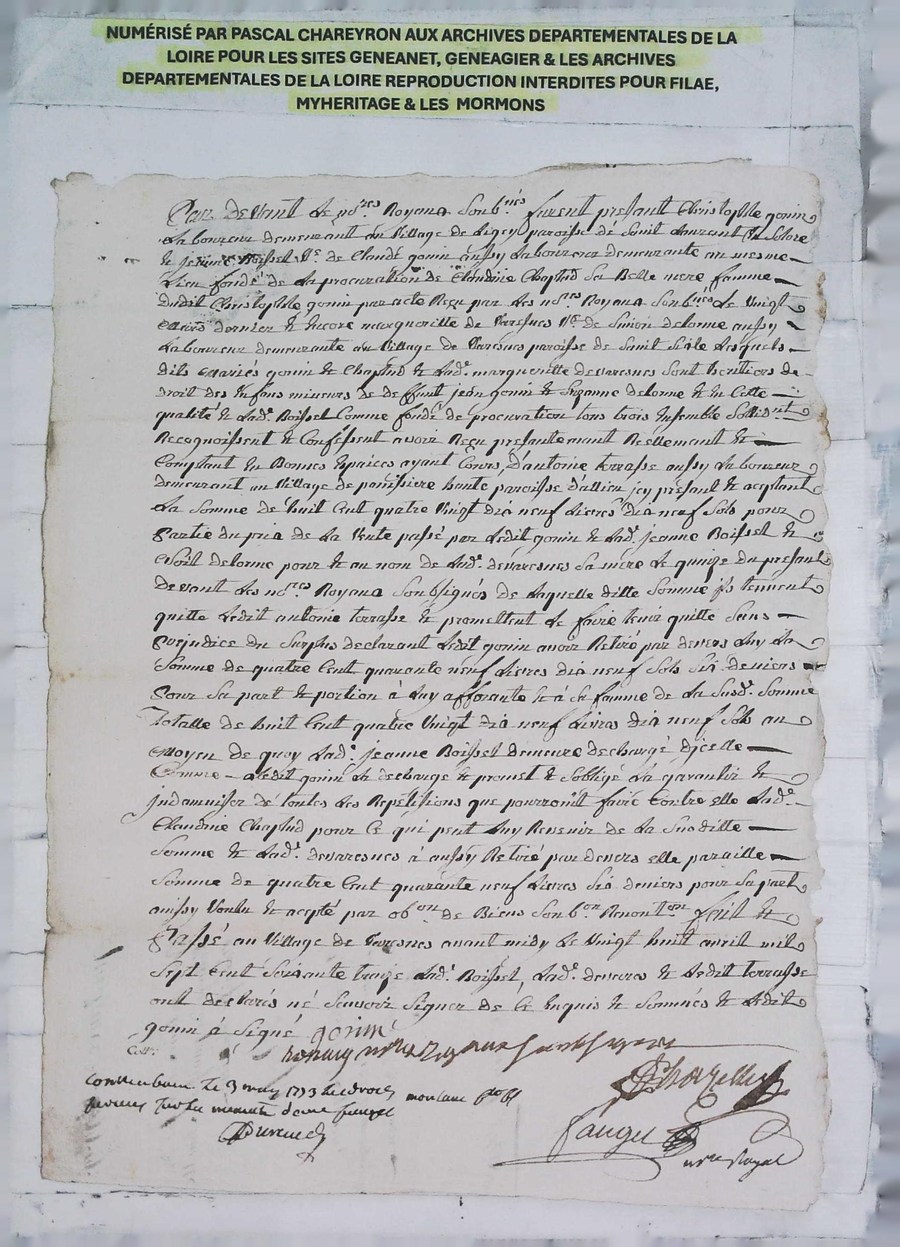 NUMÉRISÉ PAR PASCAL CHAREYRON AUX ARCHIVES DEPARTEMENTALES DE LA
LOIRE POUR LES SITES GENEANET, GENEAGIER & LES ARCHIVES
DEPARTEMENTALES DE LA LOIRE REPRODUCTION INTERDITES POUR FILAE,
MYHERITAGE & LES MORMONS
Par Devant Les no.res Royaux Soub.nés furent présent Christophle gonin
Laboureur demeurant au Village de paroisse de Saint Laurent
Boissel V.e de Claude gonin aussy Laboureur demeurante au mesme
Lieu fondé de La procuration de Claudine Chaptud Sa Belle mere femme
dudit Christophle gonin par acte Reçu par Les no.res Royaux Soub.nés Le Vingt
dernier & Encore margueritte de Varesnes V.e de Simon delorme aussy
Laboureur demeurante au Village de Varesnes paroisse de Saint Lesquels
dits Mariés gonin & Chaptud & Lad.e marguerite devaresnes Sont heritiers de
droit des Enfans mineurs de deffunt jean gonin & Suzanne delorme & En Cette
qualité & Lad.e Boissel Comme fondé de procuration tous trois Ensemble
Recognoissent & Confessent avoir Reçu presantemant Reellemant &
Comptant En Bonnes Espaices ayant Cours, d'antoine terrasse aussy Laboureur
demeurant au Village de panissiere haute paroisse d'allieu jcy présant & aceptant
La Somme de huit Cent quatre Vingt dix neuf Livres dix neuf Sols pour
partie du prix de La Vente passé par Ledit gonin & Lad.e jeanne Boissel &
delorme pour & au nom de Lad.e devaresnes Sa mere Le quinze du présant
devant Les no.res Royaux Soubsignés de Laquelle ditte Somme jls tiennent
quitte Ledit antoine terrasse & promettent Le faire tenir quitte Sans
prejudice du Surplus declarant Ledit gonin avoir Retiré par devers Luy La
Somme de quatre Cent quarante neuf Livres dix neuf Sols Six deniers
pour Sa part & portion à Luy afferante & à Sa famme de La Susd.e Somme
totalle de huit Cent quatre Vingt dix neuf Livres dix neuf Sols au
moyen de quoy Lad.e jeanne Boissel demeure dechargé d'jcelle
Comme Ledit gonin La decharge & promet & S'obligé La garantir &
jndamniser de toutes Les Repetitions que pourroint faire Contre elle Lad.e
Claudine Chaptud pour Ce qui peut Luy Revenir de La Susditte
Somme & Lad.e devaresnes à aussy Retiré par devers elle paraille
Somme de quatre Cent quarante neuf Livres Six deniers pour Sa part
ainssy Voulu & acepté par ob.on de Biens Soub.on Renont.on fait &
passé au Village de Varesnes avant midy Le Vingt huit avril mil
Sept Cent Soixante traize Lad.e Boissel, Lad.e devares & Ledit terrasse
ont declarés né Scavoir Signer de Ce Enquis & Sommés & Ledit
gonin à Signé gonin
le 3 may 1773
la minute
not.re Royal